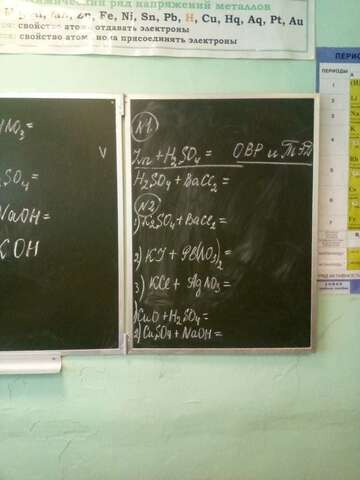 ряд напряжений металлов
Zn, Fe, Ni, Sn, Pb, H, Cu, Hg, Ag, Pt, Au
свойство отдавать электроны
свойство присоединять электроны
ПЕРИОДЫ
1
2
3
4
5
6
7
NO₃=
SO₄=
NaOH=
KOH
v
N1
Zn + H₂SO₄ = ОВР и ТЭД
H₂SO₄ + BaCl₂ =
N2
1) K₂SO₄ + BaCl₂ =
2) KI + Pb(NO₃)₂ =
3) KCl + AgNO₃ =
1) CuO + H₂SO₄ =
2) CuSO₄ + NaOH =